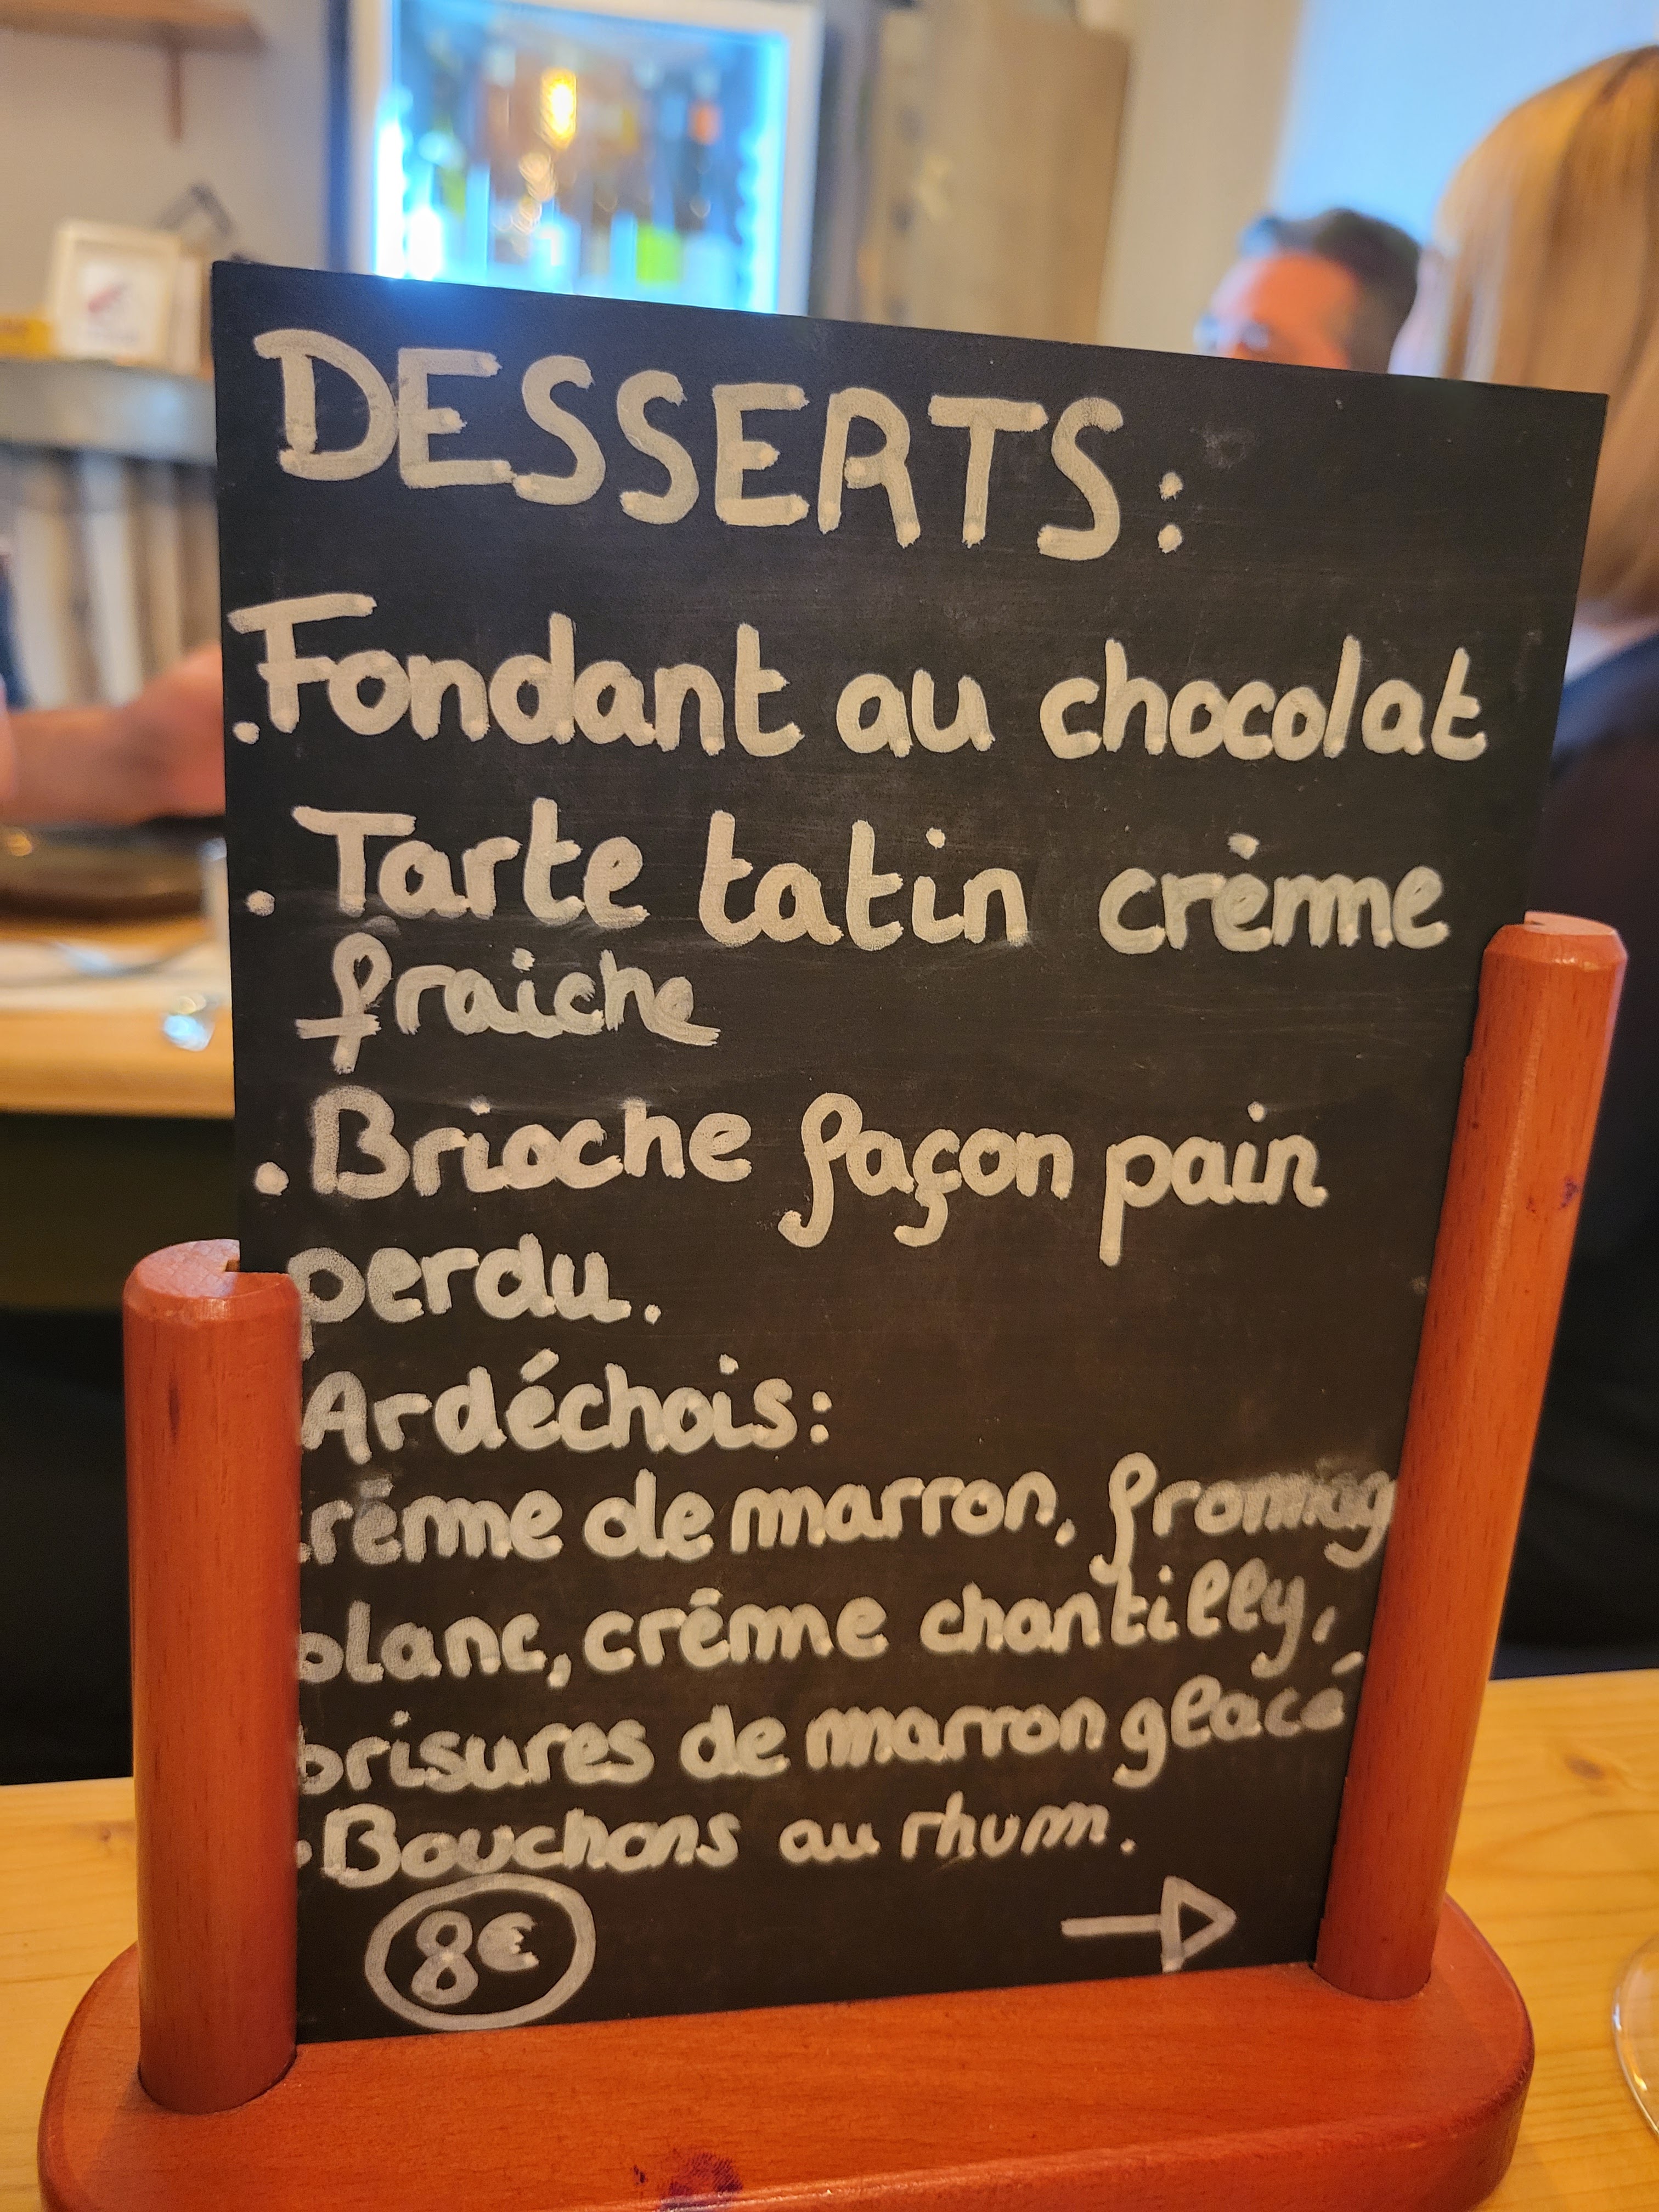 DESSERTS:
.Fondant au chocolat
. Tarte tatin crème
fraiche
. Brioche façon pain
perdu.
Ardéchois:
rème de marron, fromag
blanc, crème chantilly,
brisures de marron glacé
. Bouchons au rhum.
8€ →